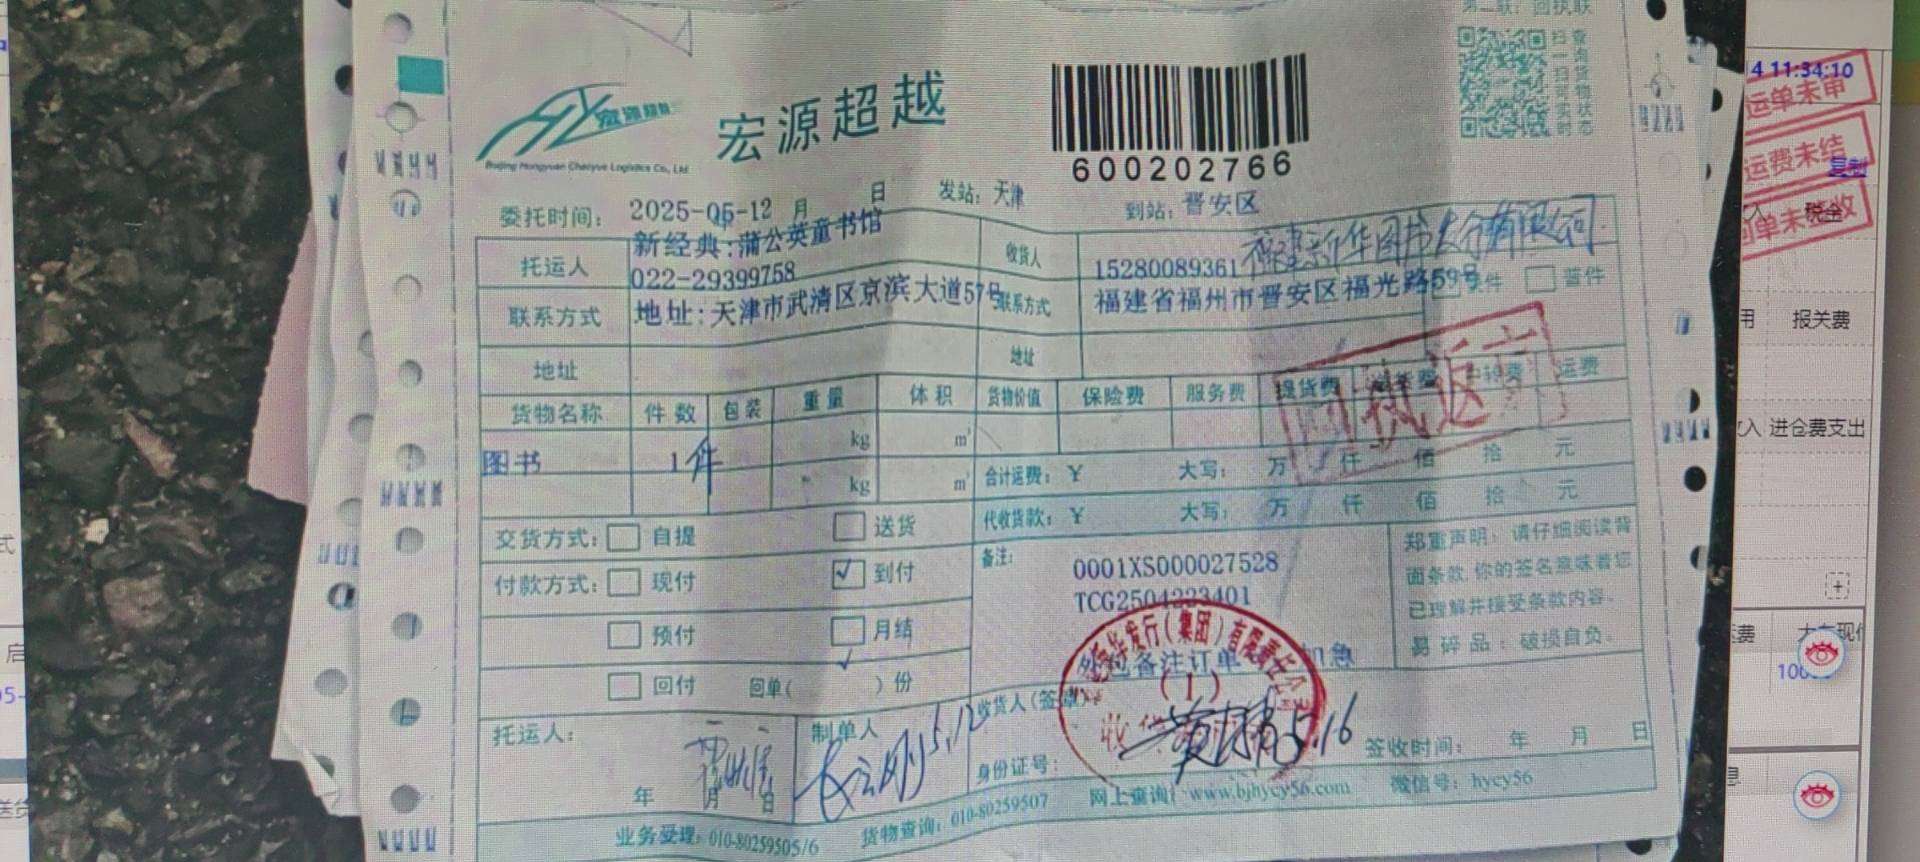 第二联：回执联
宏源超越
Beijing Hongyuan Chaoyue Logistics Co., Ltd
宏源超越
600202766
查货扫一扫
货物实时状态
委托时间： 2025-05-12 月 日 发站：天津 到站：晋安区
托运人 新经典:蒲公英童书馆
022-29399758
收货人 15280089361 福建新华图书发行有限公司
联系方式 地址:天津市武清区京滨大道57号
联系方式 福建省福州市晋安区福光路59号
件 普件
地址 地址
货物名称 件数 包装 重量 体积 货物价值 保险费 服务费 提货费 中转费 运费
图书 1件 kg m³
kg m³
合计运费：￥ 大写： 万 仟 佰 拾 元
代收货款：￥ 大写： 万 仟 佰 拾 元
交货方式： 自提 送货
付款方式： 现付 ✓ 到付
预付 月结
回付 回单( ) 份
备注：
0001XS000027528
TCG2504223401
外包备注订单 加急
郑重声明：请仔细阅读背
面条款，你的签名意味着您
已理解并接受条款内容。
易碎品：破损自负。
发行（集团）有限责任公
（1）
托运人： 年 月 日
制单人 5.12
收货人（签章）
5.16
身份证号： 签收时间： 年 月 日
业务受理：010-80259505/6 货物查询：010-80259507 网上查询：www.bjhycy56.com 微信号：hycy56
4 11:34:10
运单未审
运费未结
复制
回单未签收
税金
用 报关费
收入 进仓费支出